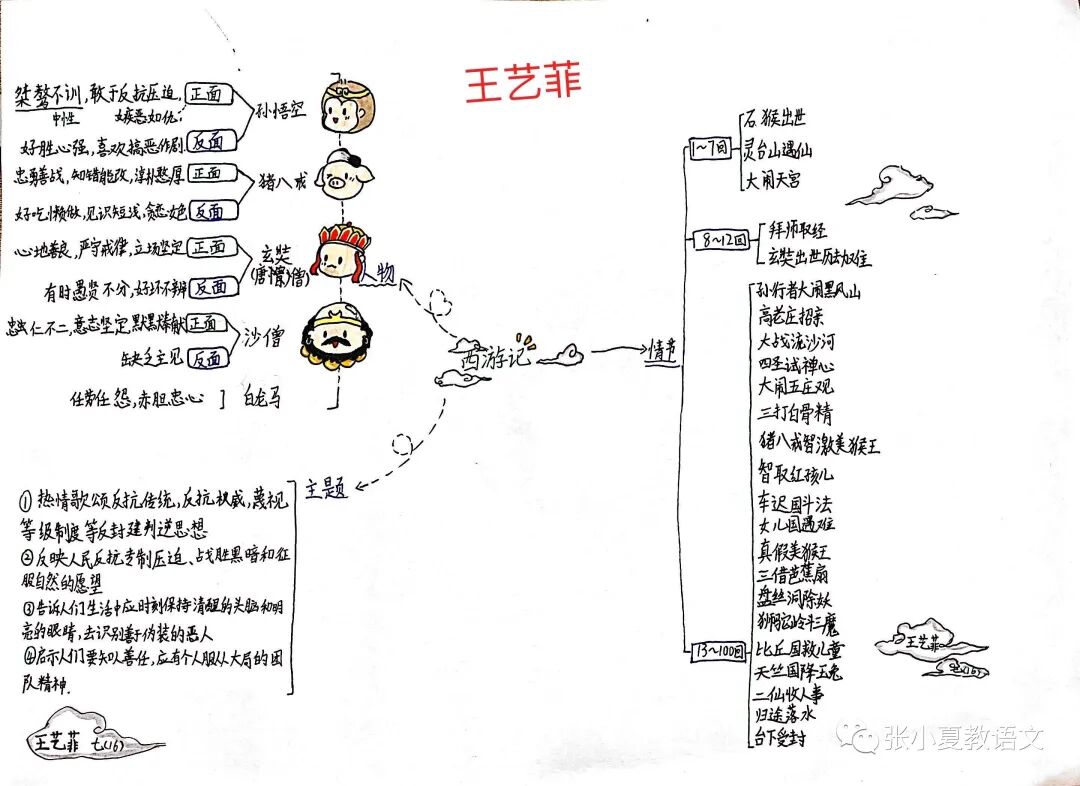 王艺菲
桀骜不训,敢于反抗压迫,
中性
嫉恶如仇;
正面
孙悟空
好胜心强,喜欢搞恶作剧.
反面
忠勇善战,知错能改,淳朴憨厚
正面
猪八戒
好吃懒做,见识短浅,贪恋女色
反面
心地善良,严守戒律,立场坚定
正面
玄奘
(唐僧)
有时愚贤不分,好坏不辨
反面
忠仁不二,意志坚定,默默奉献
正面
沙僧
缺乏主见
反面
任劳任怨,赤胆忠心
白龙马
物
西游记
情节
主题
①热情歌颂反抗传统,反抗权威,蔑视
等级制度等反封建判逆思想
②反映人民反抗专制压迫、战胜黑暗和征
服自然的愿望
③告诉人们生活中应时刻保持清醒的头脑和明
亮的眼睛,去识别善于伪装的恶人
④启示人们要知人善任,应有个人服从大局的团
队精神.
王艺菲 七(16)
1~7回
石猴出世
灵台山遇仙
大闹天宫
8~12回
拜师取经
玄奘出世
13~100回
孙行者大闹黑风山
高老庄招亲
大战流沙河
四圣试禅心
大闹五庄观
三打白骨精
猪八戒智激美猴王
智取红孩儿
车迟国斗法
女儿国遇难
真假美猴王
三借芭蕉扇
盘丝洞除妖
狮驼岭斗三魔
比丘国救儿童
天竺国降玉兔
二仙收人事
归途落水
台下受封
王艺菲
七(16)
张小夏教语文